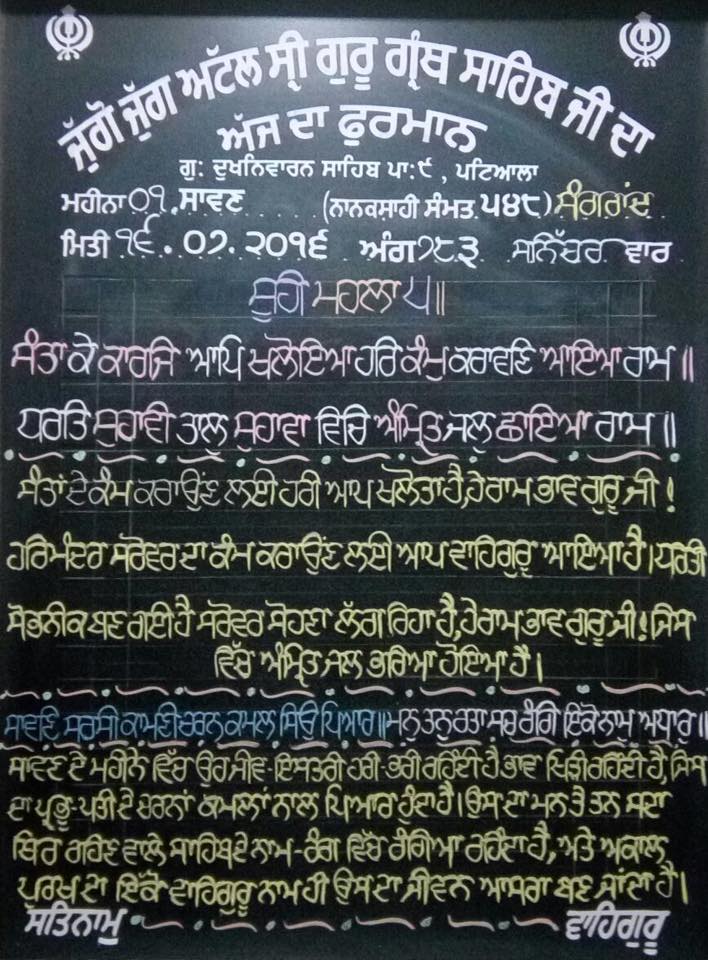 ਜੁੱਗੋ ਜੁੱਗ ਅੱਟਲ ਸ੍ਰੀ ਗੁਰੂ ਗ੍ਰੰਥ ਸਾਹਿਬ ਜੀ ਦਾ
ਅੱਜ ਦਾ ਫੁਰਮਾਨ
ਗੁ: ਦੁਖਨਿਵਾਰਨ ਸਾਹਿਬ ਪਾ:੯ , ਪਟਿਆਲਾ
ਮਹੀਨਾ ੦੧. ਸਾਵਣ (ਨਾਨਕਸਾਹੀ ਸੰਮਤ ੫੪੮) ਸੰਗਰਾਂਦ
ਮਿਤੀ ੧੬.੦੭.੨੦੧੬ ਅੰਗ ੭੮੩ ਸ਼ਨਿੱਚਰ ਵਾਰ
ਸੂਹੀ ਮਹਲਾ ੫॥
ਸੰਤਾ ਕੇ ਕਾਰਜਿ ਆਪਿ ਖਲੋਇਆ ਹਰਿ ਕੰਮੁ ਕਰਾਵਣਿ ਆਇਆ ਰਾਮ॥
ਧਰਤਿ ਸੁਹਾਵੀ ਤਾਲੁ ਸੁਹਾਵਾ ਵਿਚਿ ਅੰਮ੍ਰਿਤ ਜਲੁ ਛਾਇਆ ਰਾਮ॥
ਸੰਤਾਂ ਦੇ ਕੰਮ ਕਰਾਉਣ ਲਈ ਹਰੀ ਆਪ ਖਲੋਤਾ ਹੈ, ਹੇ ਰਾਮ ਭਾਵ ਗੁਰੂ ਜੀ!
ਹਰਿਮੰਦਰ ਸਰੋਵਰ ਦਾ ਕੰਮ ਕਰਾਉਣ ਲਈ ਆਪ ਵਾਹਿਗੁਰੂ ਆਇਆ ਹੈ। ਧਰਤੀ
ਸੋਭਨੀਕ ਬਣ ਗਈ ਹੈ ਸਰੋਵਰ ਸੋਹਣਾ ਲੱਗ ਰਿਹਾ ਹੈ, ਹੇ ਰਾਮ ਭਾਵ ਗੁਰੂ ਜੀ! ਜਿਸ
ਵਿੱਚ ਅੰਮ੍ਰਿਤ ਜਲ ਭਰਿਆ ਹੋਇਆ ਹੈ।
ਸਾਵਣਿ ਸਰਸੀ ਕਾਮਣੀ ਚਰਨ ਕਮਲ ਸਿਉ ਪਿਆਰੁ॥ ਮਨੁ ਤਨੁ ਰਤਾ ਸਚ ਰੰਗਿ ਇਕੋ ਨਾਮੁ ਅਧਾਰੁ॥
ਸਾਵਣ ਦੇ ਮਹੀਨੇ ਵਿੱਚ ਉਹ ਜੀਵ-ਇਸਤਰੀ ਹਰੀ-ਭਰੀ ਰਹਿੰਦੀ ਹੈ ਭਾਵ ਖਿੜੀ ਰਹਿੰਦੀ ਹੈ, ਜਿਸ
ਦਾ ਪ੍ਰਭੂ-ਪਤੀ ਦੇ ਚਰਨਾਂ ਕਮਲਾਂ ਨਾਲ ਪਿਆਰ ਹੁੰਦਾ ਹੈ। ਉਸ ਦਾ ਮਨ ਤੇ ਤਨ ਸਦਾ
ਥਿਰ ਰਹਿਣ ਵਾਲੇ ਸਾਹਿਬ ਦੇ ਨਾਮ-ਰੰਗ ਵਿੱਚ ਰੰਗਿਆ ਰਹਿੰਦਾ ਹੈ, ਅਤੇ ਅਕਾਲ
ਪੁਰਖ ਦਾ ਇੱਕੋ ਵਾਹਿਗੁਰੂ ਨਾਮ ਹੀ ਉਸ ਦਾ ਜੀਵਨ ਆਸਰਾ ਬਣ ਜਾਂਦਾ ਹੈ।
ਸਤਿਨਾਮੁ ਵਾਹਿਗੁਰੂ